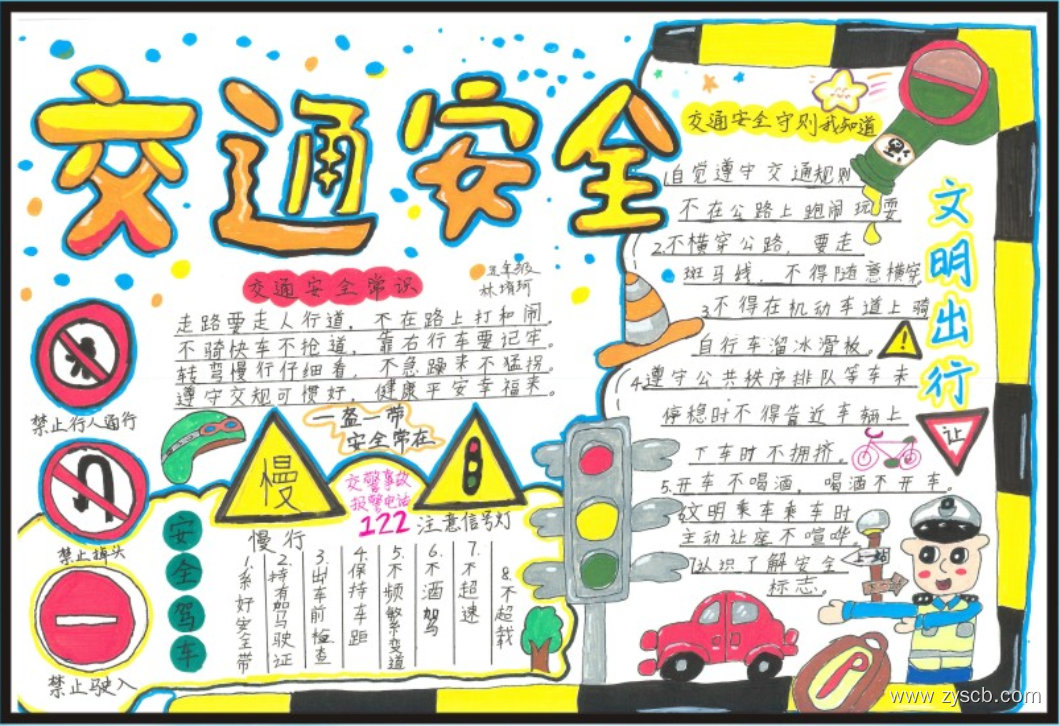 交通安全
五年级
林堉珂
交通安全常识
走路要走人行道，不在路上打和闹。
不骑快车不抢道，靠右行车要记牢。
转弯慢行仔细看，不急躁来不猛拐。
遵守交规习惯好，健康平安幸福来。
禁止行人通行
禁止掉头
禁止驶入
一盔一带
安全常在
慢
慢行
交警事故
报警电话
122
注意信号灯
安全驾车
1.系好安全带
2.持有驾驶证
3.出车前检查
4.保持车距
5.不频繁变道
6.不酒驾
7.不超速
8.不超载
交通安全守则我知道
1.自觉遵守交通规则
不在公路上跑闹玩耍
2.不横穿公路，要走
斑马线，不得随意横穿
3.不得在机动车道上骑
自行车溜冰滑板。
4.遵守公共秩序排队等车未
停稳时不得靠近车辆上
下车时不拥挤。
5.开车不喝酒，喝酒不开车。
6.文明乘车乘车时
主动让座不喧哗。
7.认识了解安全
标志。
文明出行
让
P
www.zyscb.com